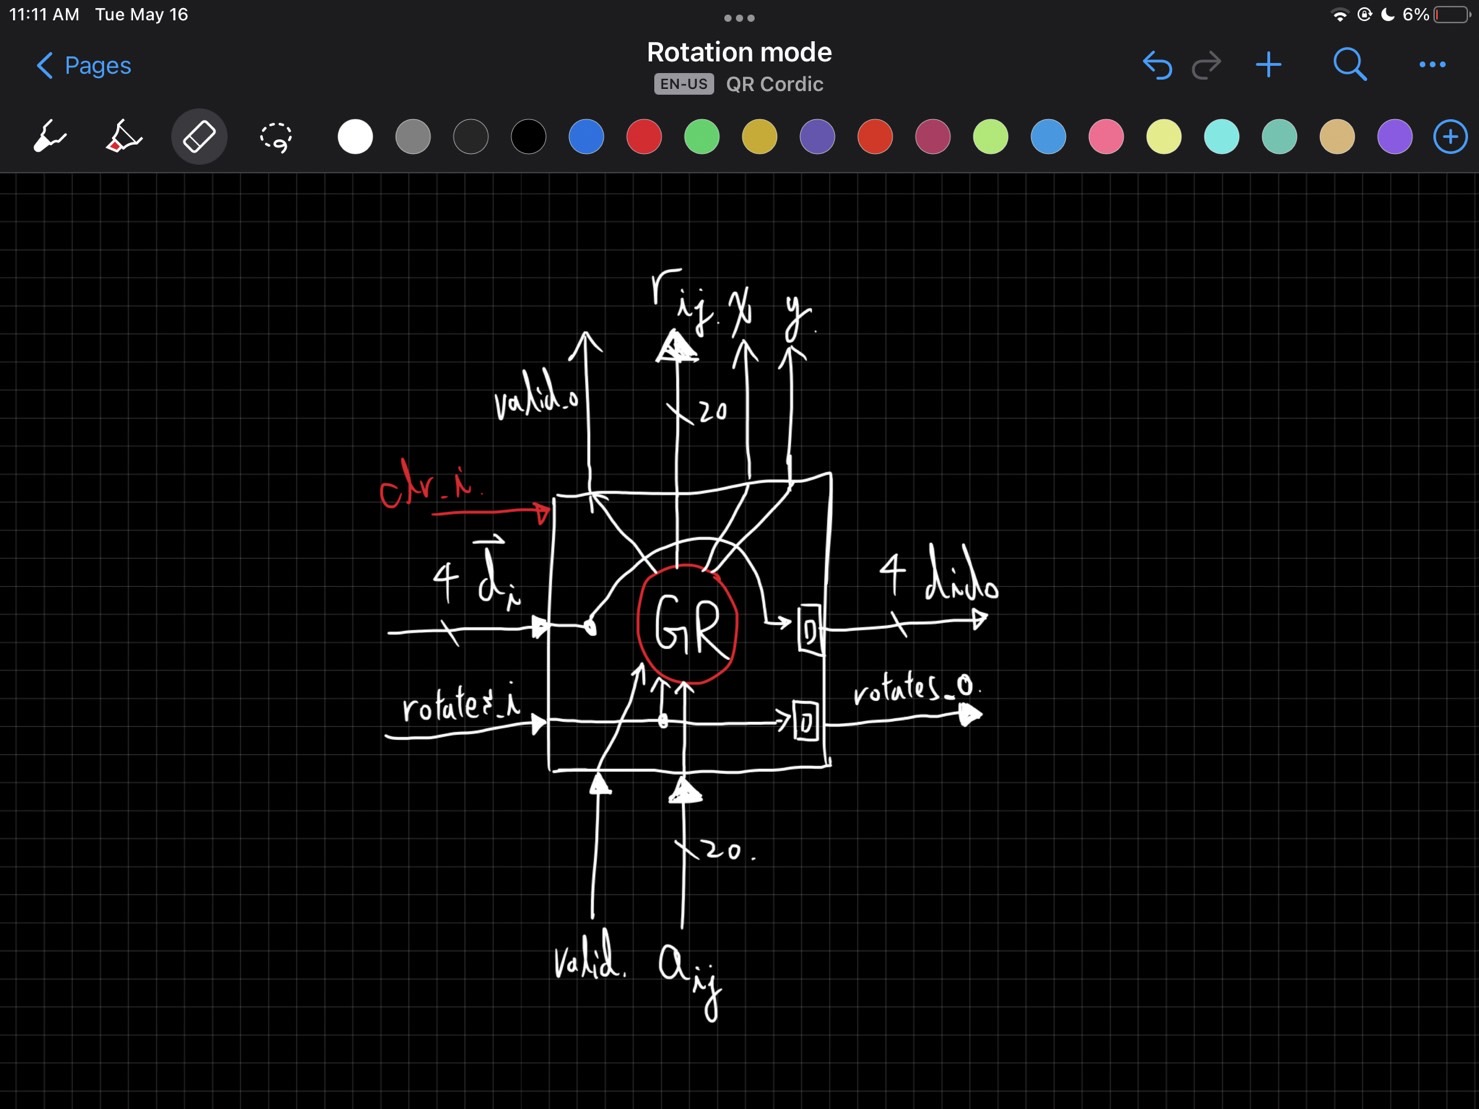 11:11 AM Tue May 16
6%
Pages
Rotation mode
EN-US QR Cordic
r ij. x y.
valid_o
20
clr_i.
4 d i
4 dido
GR
D
rotates_i
rotates_o.
D
20.
valid. a ij